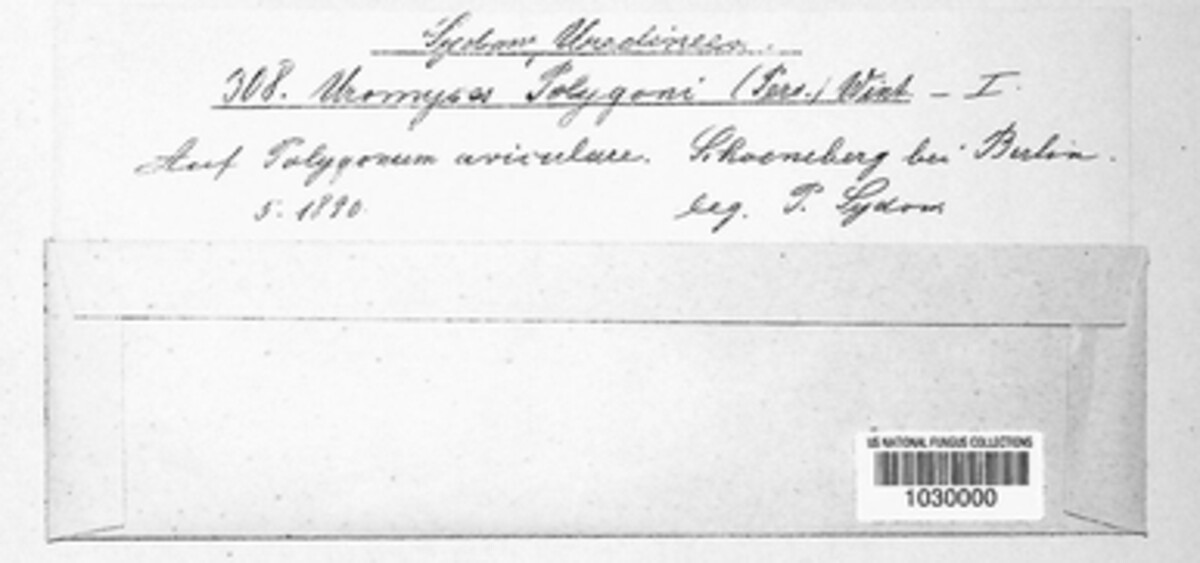 Sydow, Uredineen.
308. Uromyces Polygoni (Pers.) Wint - I.
Auf Polygonum aviculare. Schoeneberg bei Berlin.
5. 1890. leg. P. Sydow
US NATIONAL FUNGUS COLLECTIONS
1030000